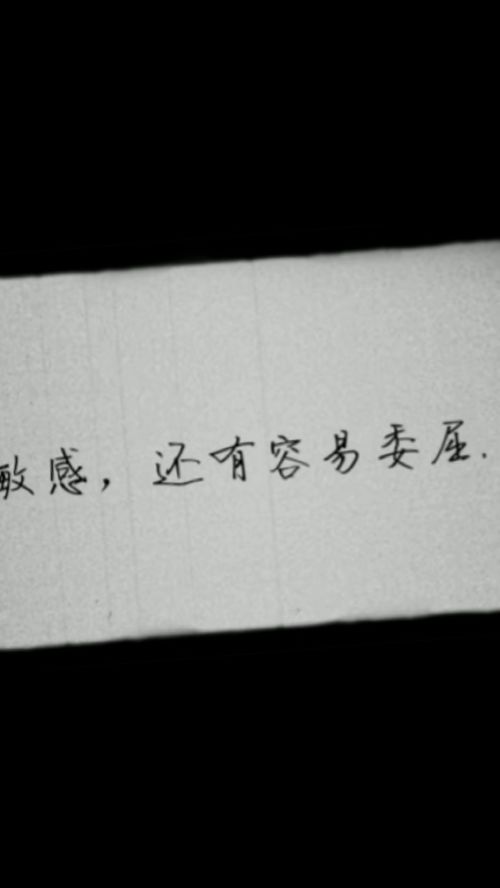 敏感，还有容易委屈.